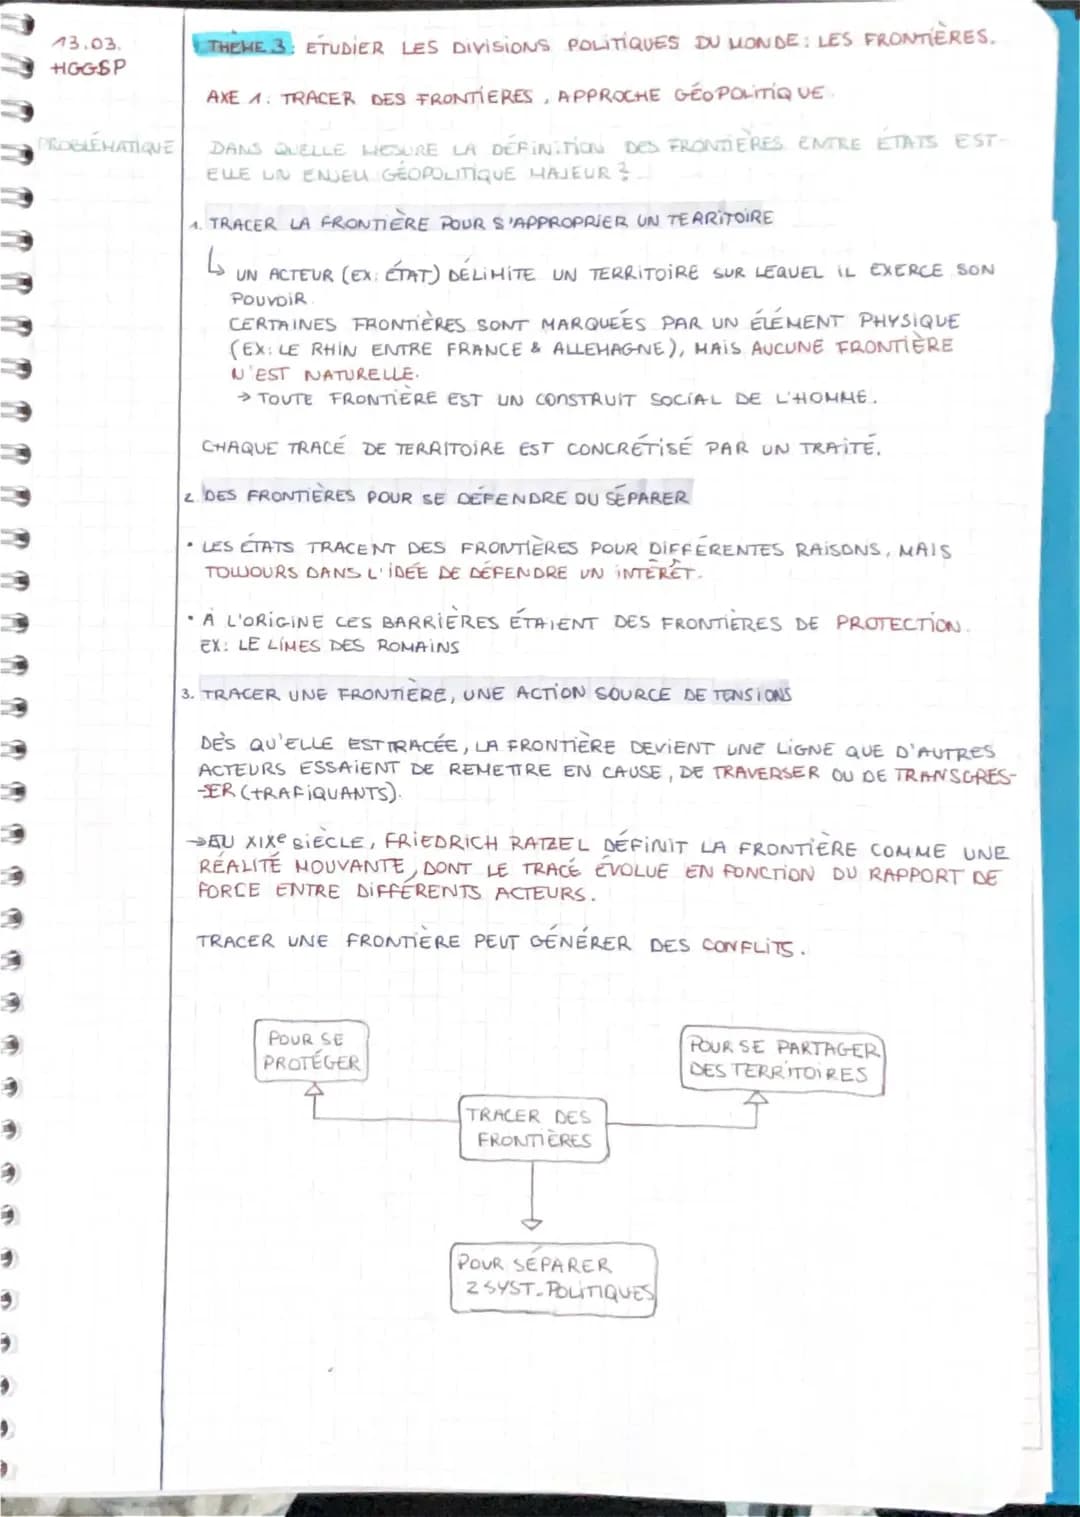 13.03.
HGGSP
THÈME 3: ÉTUDIER LES DIVISIONS POLITIQUES DU MONDE: LES FRONTIÈRES.
AXE 1: TRACER DES FRONTIÈRES, APPROCHE GÉOPOLITIQUE.
PROBLÉMATIQUE
DANS QUELLE MESURE LA DÉFINITION DES FRONTIÈRES ENTRE ÉTATS EST-
ELLE UN ENJEU GÉOPOLITIQUE MAJEUR ?
1. TRACER LA FRONTIÈRE POUR S'APPROPRIER UN TERRITOIRE
↳ UN ACTEUR (EX: ÉTAT) DÉLIMITE UN TERRITOIRE SUR LEQUEL IL EXERCE SON
POUVOIR.
CERTAINES FRONTIÈRES SONT MARQUÉES PAR UN ÉLÉMENT PHYSIQUE
(EX: LE RHIN ENTRE FRANCE & ALLEMAGNE), MAIS AUCUNE FRONTIÈRE
N'EST NATURELLE.
→ TOUTE FRONTIÈRE EST UN CONSTRUIT SOCIAL DE L'HOMME.
CHAQUE TRACÉ DE TERRITOIRE EST CONCRÉTISÉ PAR UN TRAITÉ.
2. DES FRONTIÈRES POUR SE DÉFENDRE OU SÉPARER
• LES ÉTATS TRACENT DES FRONTIÈRES POUR DIFFÉRENTES RAISONS, MAIS
TOUJOURS DANS L'IDÉE DE DÉFENDRE UN INTÉRÊT.
• À L'ORIGINE CES BARRIÈRES ÉTAIENT DES FRONTIÈRES DE PROTECTION.
EX: LE LIMES DES ROMAINS
3. TRACER UNE FRONTIÈRE, UNE ACTION SOURCE DE TENSIONS
DÈS QU'ELLE EST TRACÉE, LA FRONTIÈRE DEVIENT UNE LIGNE QUE D'AUTRES
ACTEURS ESSAIENT DE REMETTRE EN CAUSE, DE TRAVERSER OU DE TRANSGRES-
-SER (TRAFIQUANTS).
→ AU XIXe SIÈCLE, FRIEDRICH RATZEL DÉFINIT LA FRONTIÈRE COMME UNE
RÉALITÉ MOUVANTE, DONT LE TRACÉ ÉVOLUE EN FONCTION DU RAPPORT DE
FORCE ENTRE DIFFÉRENTS ACTEURS.
TRACER UNE FRONTIÈRE PEUT GÉNÉRER DES CONFLITS.
POUR SE
PROTÉGER
POUR SE PARTAGER
DES TERRITOIRES
TRACER DES
FRONTIÈRES
POUR SÉPARER
2 SYST. POLITIQUES